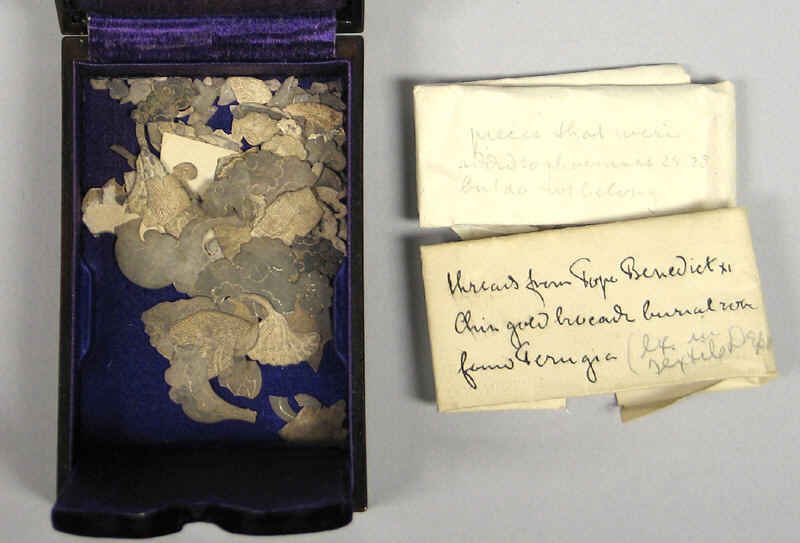 pieces that were
added to phoenixes 27.28
but do not belong
threads from Pope Benedict XI
Chin gold brocade burial robe
found Perugia (Ex. in
Textile Dept